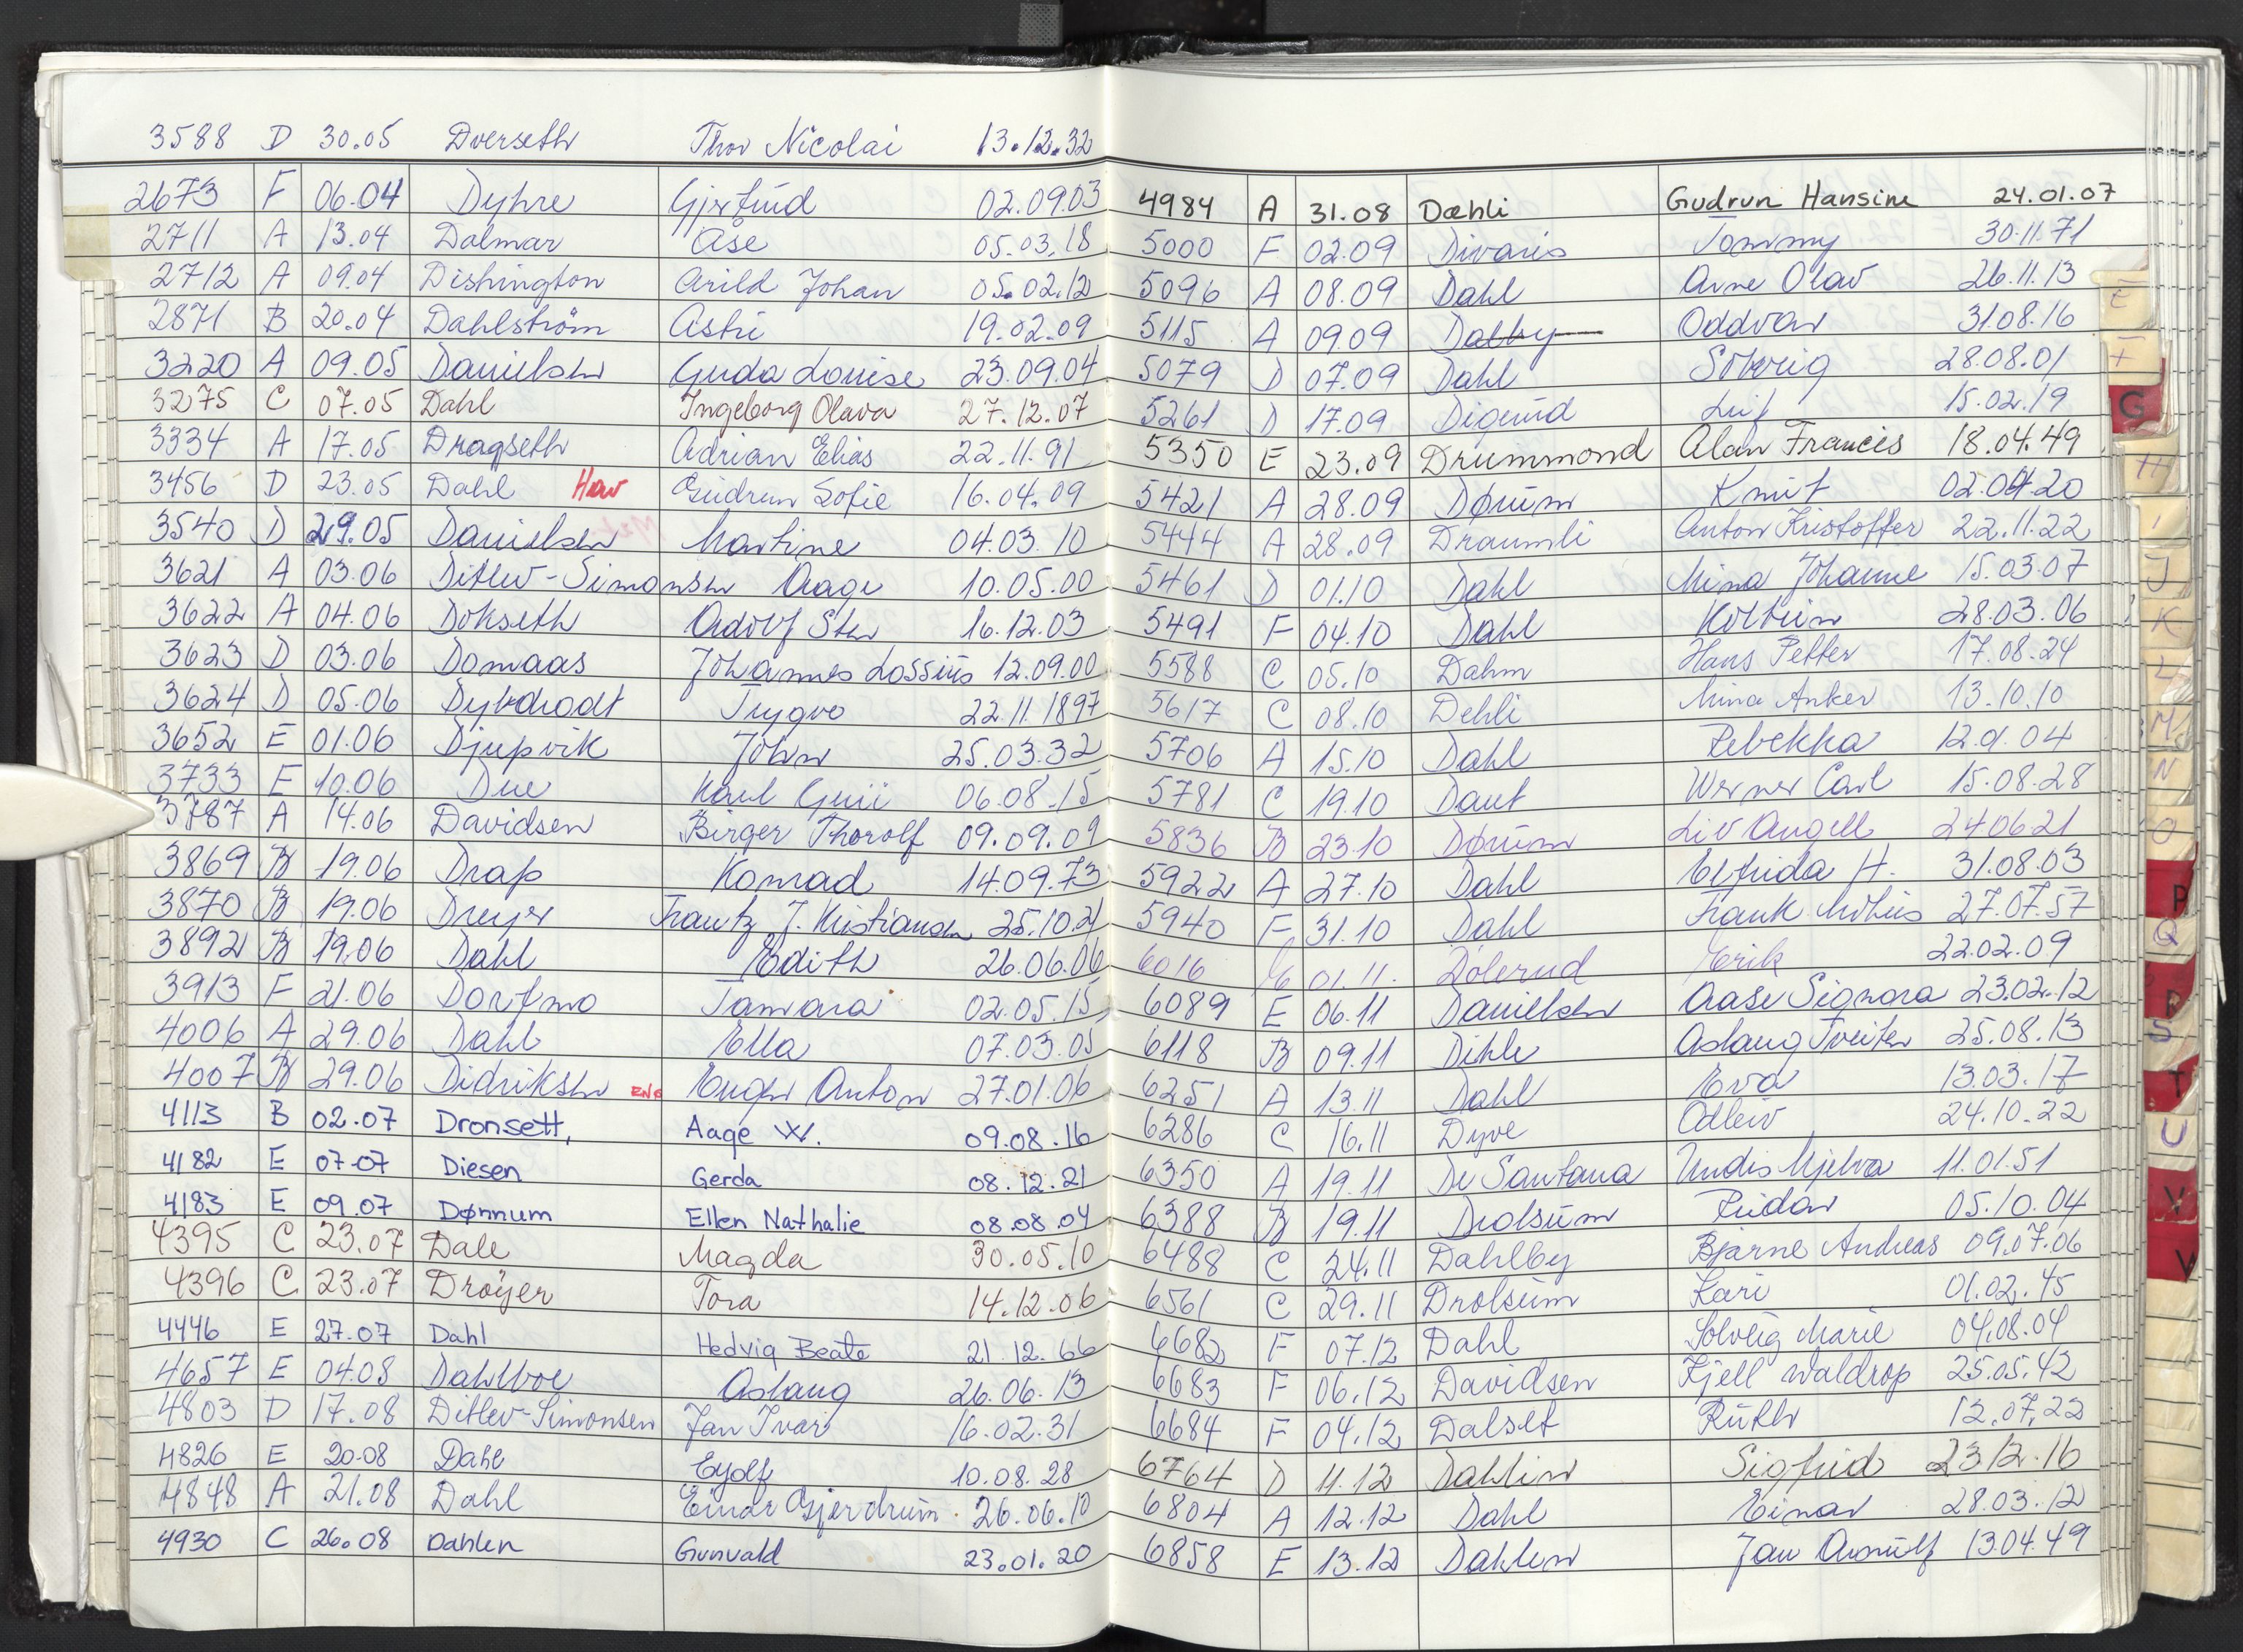 3588 D 30.05 Dverseth Thor Nicolai 13.12.32
2673 F 06.04 Dyhre Gjertrud 02.09.03
2711 A 13.04 Dalmar Åse 05.03.18
2712 A 09.04 Dishington Arild Johan 05.02.12
2871 B 20.04 Dahlström Astri 19.02.09
3220 A 09.05 Danielsen Guda Louise 23.09.04
3275 C 07.05 Dahl Ingeborg Olava 27.12.07
3334 A 17.05 Dragseth Adrian Elias 22.11.91
3456 D 23.05 Dahl Gudrun Sofie 16.04.09
3540 D 29.05 Danielsen Martine 04.03.10
3621 A 03.06 Ditlev-Simonsen Aage 10.05.00
3622 A 04.06 Dokseth Adolf Sten 16.12.03
3623 D 03.06 Domaas Johannes Lossius 12.09.00
3624 D 05.06 Trygve 22.11.1897
3652 E 01.06 Djupvik John 25.03.32
3733 E 10.06 Due Karl 06.08.15
3787 A 14.06 Davidsen Birger Thorolf 09.09.09
3869 B 19.06 Drap Konrad 14.09.73
3870 B 19.06 Dreyer Frantz J. Kristiansen 25.10.21
3892 B 19.06 Dahl Edith 26.06.06
3913 F 21.06 Dorfmo Tamara 02.05.15
4006 A 29.06 Dahl Ella 07.03.05
4007 B 29.06 Didriksen ENG Anton 27.01.06
4113 B 02.07 Dronsett, Aage W. 09.08.16
4182 E 07-07 Diesen Gerda 08.12.21
4183 E 09.07 Dønnum Ellen Nathalie 08.08.04
4395 C 23.07 Dale Magda 30.05.10
4396 C 23.07 Dröyer Tora 14.12.06
4446 E 27.07 Dahl Hedvig Beate 21.12.66
4657 E 04.08 Dahlboe Aslaug 26.06.13
4803 D 17.08 Ditlev-Simonsen Jan Ivar 16.02.31
4826 E 20.08 Dahl Eyolf 10.08.28
4848 A 21.08 Dahl Einar Gjerdrum 26.06.10
4930 C 26.08 Dahlen Gunvald 23.01.20
4984 A 31.08 Dæhli Gudrun Hansine 24.01.07
5000 F 02.09 Divaris Tommy 30.11.71
5096 A 08.09 Dahl Arne Olav 26.11.13
5115 A 09.09 Dalby Oddvar 31.08.16
5079 D 07.09 Dahl Solveig 28.08.01
5261 D 17.09 Digerud Leif 15.02.19
5350 E 23.09 Drummond Alan Francis 18.04.49
5421 A 28.09 Dørum Knut 02.04.20
5444 A 28.09 Draumli Anton Kristoffer 22.11.22
5461 D 01.10 Dahl Mina Johanne 15.03.07
5491 F 04.10 Dahl Kolbein 28.03.06
5588 C 05.10 Dahm Hans Petter 17.08.24
5617 C 08.10 Dehli Mina Anker 13.10.10
5706 A 15.10 Dahl Rebekka 12.9.04
5781 C 19.10 Daut Werner Carl 15.08.28
5836 B 23.10 Dørum Liv Angell 24.06.21
5922 A 27.10 Dahl Elfrida H. 31.08.03
5940 F 31.10 Dahl Frank Møhus 27.07.57
6016 E 01.11. Dølerud Erik 22.02.09
6089 E 06.11 Danielsen Aase Signora 23.02.12
6118 B 09.11 Dihle Aslaug Tveiten 25.08.13
6251 A 13.11 Dahl Eva 13.03.17
6286 C 16.11 Dyve Odleiv 24.10.22
6350 A 19.11 De Santana Undis Mjelva 11.01.51
6388 B 19.11 Drolsum Reidar 05.10.04
6488 C 24.11 Dahlby Bjarne Andreas 09.07.06
6561 C 29.11 Drolsum Kari 01.02.45
6682 F 07.12 Dahl Solveig Marie 04.08.04
6683 F 06.12 Davidsen Kjell Waldrop 25.05.42
6684 F 04.12 Dalset Ruth 12.07.22
6764 D 11.12 Dahlin Sigfrid 23.12.16
6804 A 12.12 Dahl Einar 28.03.12
6858 E 13.12 Dahlen Jan Arnulf 13.04.49
E
F
G
H
I
J
K
L
M
N
O
P
Q
R
S
T
U
V